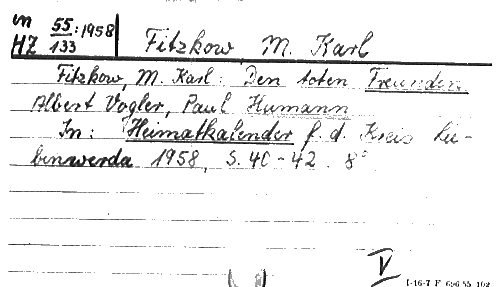 in 55:1958
HZ 133
Fitzkow, M. Karl
Fitzkow, M. Karl: Den toten Freunden
Albert Vogler, Paul Humann
In: Heimatkalender f. d. Kreis Lie-
benwerda 1958, S. 40-42. 8°
V
I-16-7 F 696 55 102